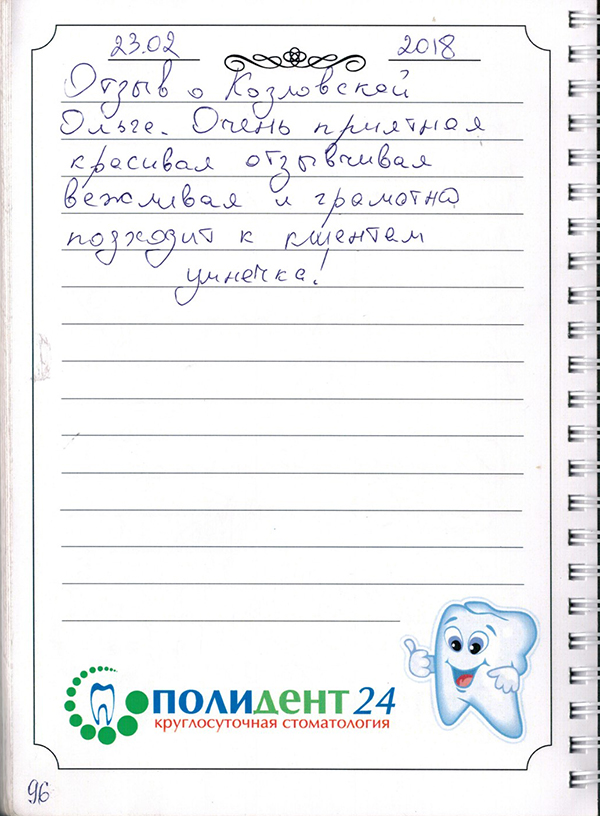 23.02 2018
Отзыв о Козловской
Ольге. Очень приятная
красивая отзывчивая
вежливая и грамотно
подходит к клиентам
умнечка!
ПОЛИДЕНТ 24
круглосуточная стоматология
96